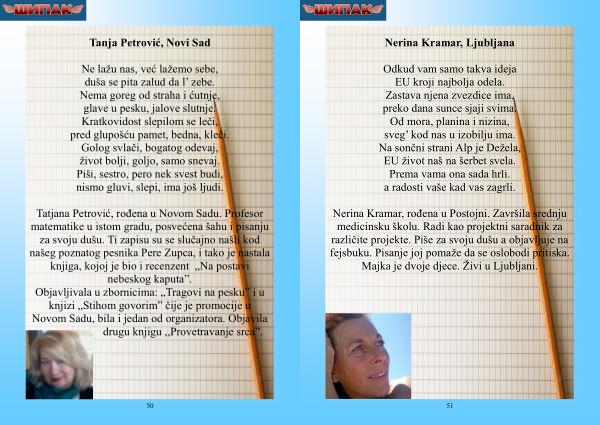 ШИПАК
Tanja Petrović, Novi Sad
Ne lažu nas, već lažemo sebe,
duša se pita zalud da l’ zebe.
Nema goreg od straha i ćutnje,
glave u pesku, jalove slutnje.
Kratkovidost slepilom se leči,
pred glupošću pamet, bedna, kleči.
Golog svlači, bogatog odevaj,
život bolji, goljo, samo snevaj.
Piši, sestro, pero nek svest budi,
nismo gluvi, slepi, ima još ljudi.
Tatjana Petrović, rođena u Novom Sadu. Profesor
matematike u istom gradu, posvećena šahu i pisanju
za svoju dušu. Ti zapisu su se slučajno našli kod
našeg poznatog pesnika Pere Zupca, i tako je nastala
knjiga, kojoj je bio i recenzent „Na postavi
nebeskog kaputa”.
Objavljivala u zbornicima: „Tragovi na pesku” i u
knjizi „Stihom govorim” čije je promocije u
Novom Sadu, bila i jedan od organizatora. Objavila
drugu knjigu „Provetravanje srca”.
50
ШИПАК
Nerina Kramar, Ljubljana
Odkud vam samo takva ideja
EU kroji najbolja odela.
Zastava njena zvezdice ima,
preko dana sunce sjaji svima.
Od mora, planina i nizina,
sveg’ kod nas u izobilju ima.
Na sončni strani Alp je Dežela,
EU život naš na šerbet svela.
Prema vama ona sada hrli.
a radosti vaše kad vas zagrli.
Nerina Kramar, rođena u Postojni. Završila srednju
medicinsku školu. Radi kao projektni saradnik za
različite projekte. Piše za svoju dušu a objavljuje na
fejsbuku. Pisanje joj pomaže da se oslobodi pritiska.
Majka je dvoje djece. Živi u Ljubljani.
51